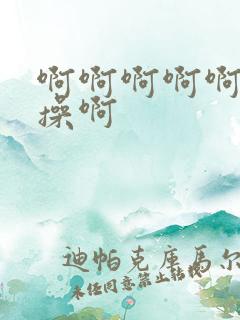 啊啊啊啊啊
操啊
迪帕克库马尔
未任同意禁止转载